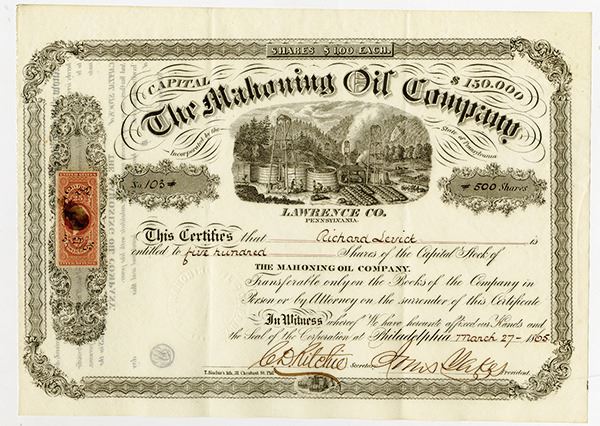 SHARES $1,00 EACH.
CAPITAL $150.000
The Mahoning Oil Company
Incorporated by the State of Pennsylvania
No 103 # # 500 Shares
LAWRENCE CO.
PENNSYLVANIA.
This Certifies that Richard Levick is
entitled to five hundred Shares of the Capital Stock of
THE MAHONING OIL COMPANY.
Transferable only on the Books of the Company in
Person or by Attorney on the surrender of this Certificate
In Witness whereof We have hereunto affixed our Hands and
the Seal of the Corporation at Philadelphia March 27 - 1865
Secretary President.